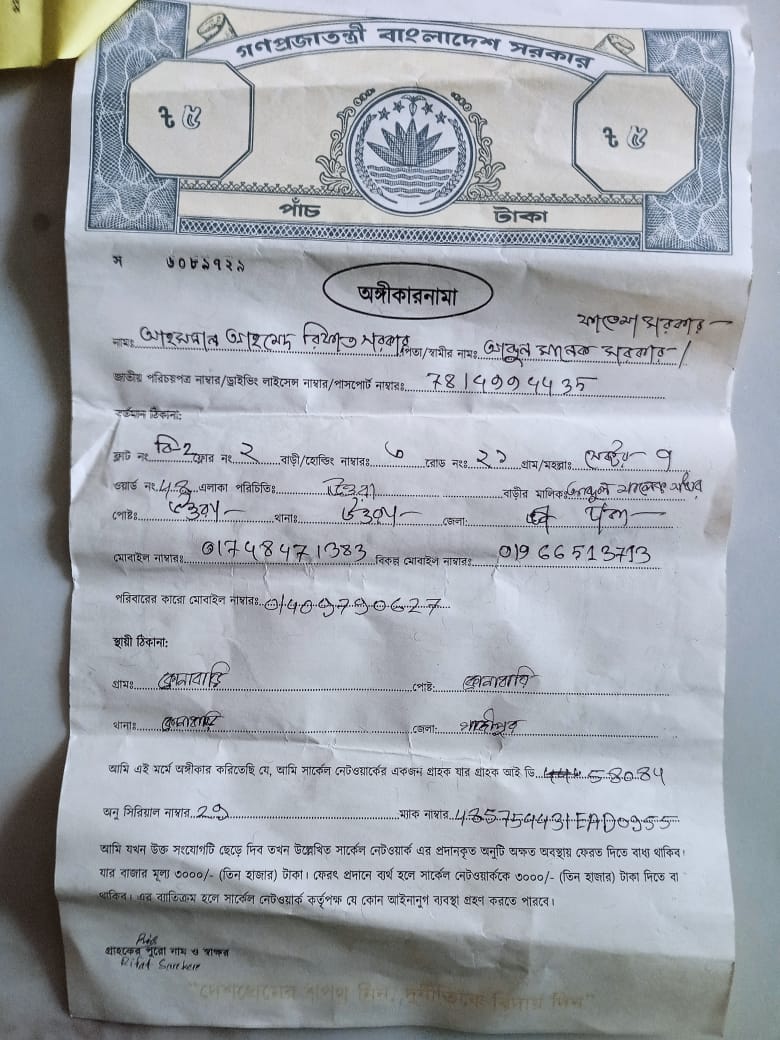 গণপ্রজাতন্ত্রী বাংলাদেশ সরকার
৳ ৫ ৳ ৫
পাঁচ টাকা
স ৬০৮৯৭২৯
অঙ্গীকারনামা
ফাতেমা সরকার
নামঃ আহসান আহমেদ রিফাত সরকার পিতা/স্বামীর নামঃ আব্দুল মালেক সরকার /
জাতীয় পরিচয়পত্র নাম্বার/ড্রাইভিং লাইসেন্স নাম্বার/পাসপোর্ট নাম্বারঃ 7814994435
বর্তমান ঠিকানা:
ফ্লাট নং বি-2 ফ্লোর নং ২ বাড়ী/হোল্ডিং নাম্বারঃ ৬ রোড নংঃ ২১ গ্রাম/মহল্লাঃ সেক্টর ৭
ওয়ার্ড নং এলাকা পরিচিতিঃ উত্তরা বাড়ীর মালিকঃ আব্দুল মালেক
পোষ্টঃ উত্তরা থানাঃ উত্তরা জেলা:
মোবাইল নাম্বারঃ 01748471383 বিকল্প মোবাইল নাম্বারঃ 01966513713
পরিবারের কারো মোবাইল নাম্বারঃ 01409790627
স্থায়ী ঠিকানা:
গ্রামঃ কোনাবাড়ি পোষ্ট: কোনাবাড়ি
থানাঃ কোনাবাড়ি জেলা: গাজীপুর
আমি এই মর্মে অঙ্গীকার করিতেছি যে, আমি সার্কেল নেটওয়ার্কের একজন গ্রাহক যার গ্রাহক আই ডি 58084
অনু সিরিয়াল নাম্বার 29 ম্যাক নাম্বার 485754431EAD0955
আমি যখন উক্ত সংযোগটি ছেড়ে দিব তখন উল্লেখিত সার্কেল নেটওয়ার্ক এর প্রদানকৃত অনুটি অক্ষত অবস্থায় ফেরত দিতে বাধ্য থাকিব।
যার বাজার মূল্য ৩০০০/- (তিন হাজার) টাকা। ফেরৎ প্রদানে ব্যর্থ হলে সার্কেল নেটওয়ার্ককে ৩০০০/- (তিন হাজার) টাকা দিতে বা
থাকিব। এর ব্যতিক্রম হলে সার্কেল নেটওয়ার্ক কর্তৃপক্ষ যে কোন আইনানুগ ব্যবস্থা গ্রহণ করতে পারবে।
গ্রাহকের পুরো নাম ও স্বাক্ষর
Rifat Sarekar
"দেশপ্রেমের শপথ নিন, দুর্নীতিকে বিদায় দিন"